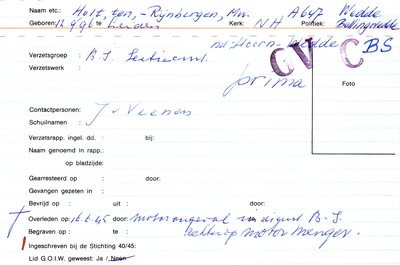 Naam etc.: Holt, ten, - Rijnbergen, Mw. A647 Wedde
Geboren: 12.9.96 Leiden Kerk: NH Politiek: Bellingwolde
nu: Hoorn-Wedde BS
GV C
Verzetsgroep : B.S.
Verzetswerk :
prima
Foto
Contactpersonen: J v Veenen
Schuilnamen :
Verzetsrapp. ingel. dd. : bij:
Naam genoemd in rapp.:
op bladzijde:
Gearresteerd op : door:
Gevangen gezeten in :
Bevrijd op : uit : door:
Overleden op: 16.6.45 door: motorongeval in dienst B.S.
Begraven op : te : achterop motor Menger.
Ingeschreven bij de Stichting 40/45:
Lid G.O.I.W. geweest: Ja / Neen